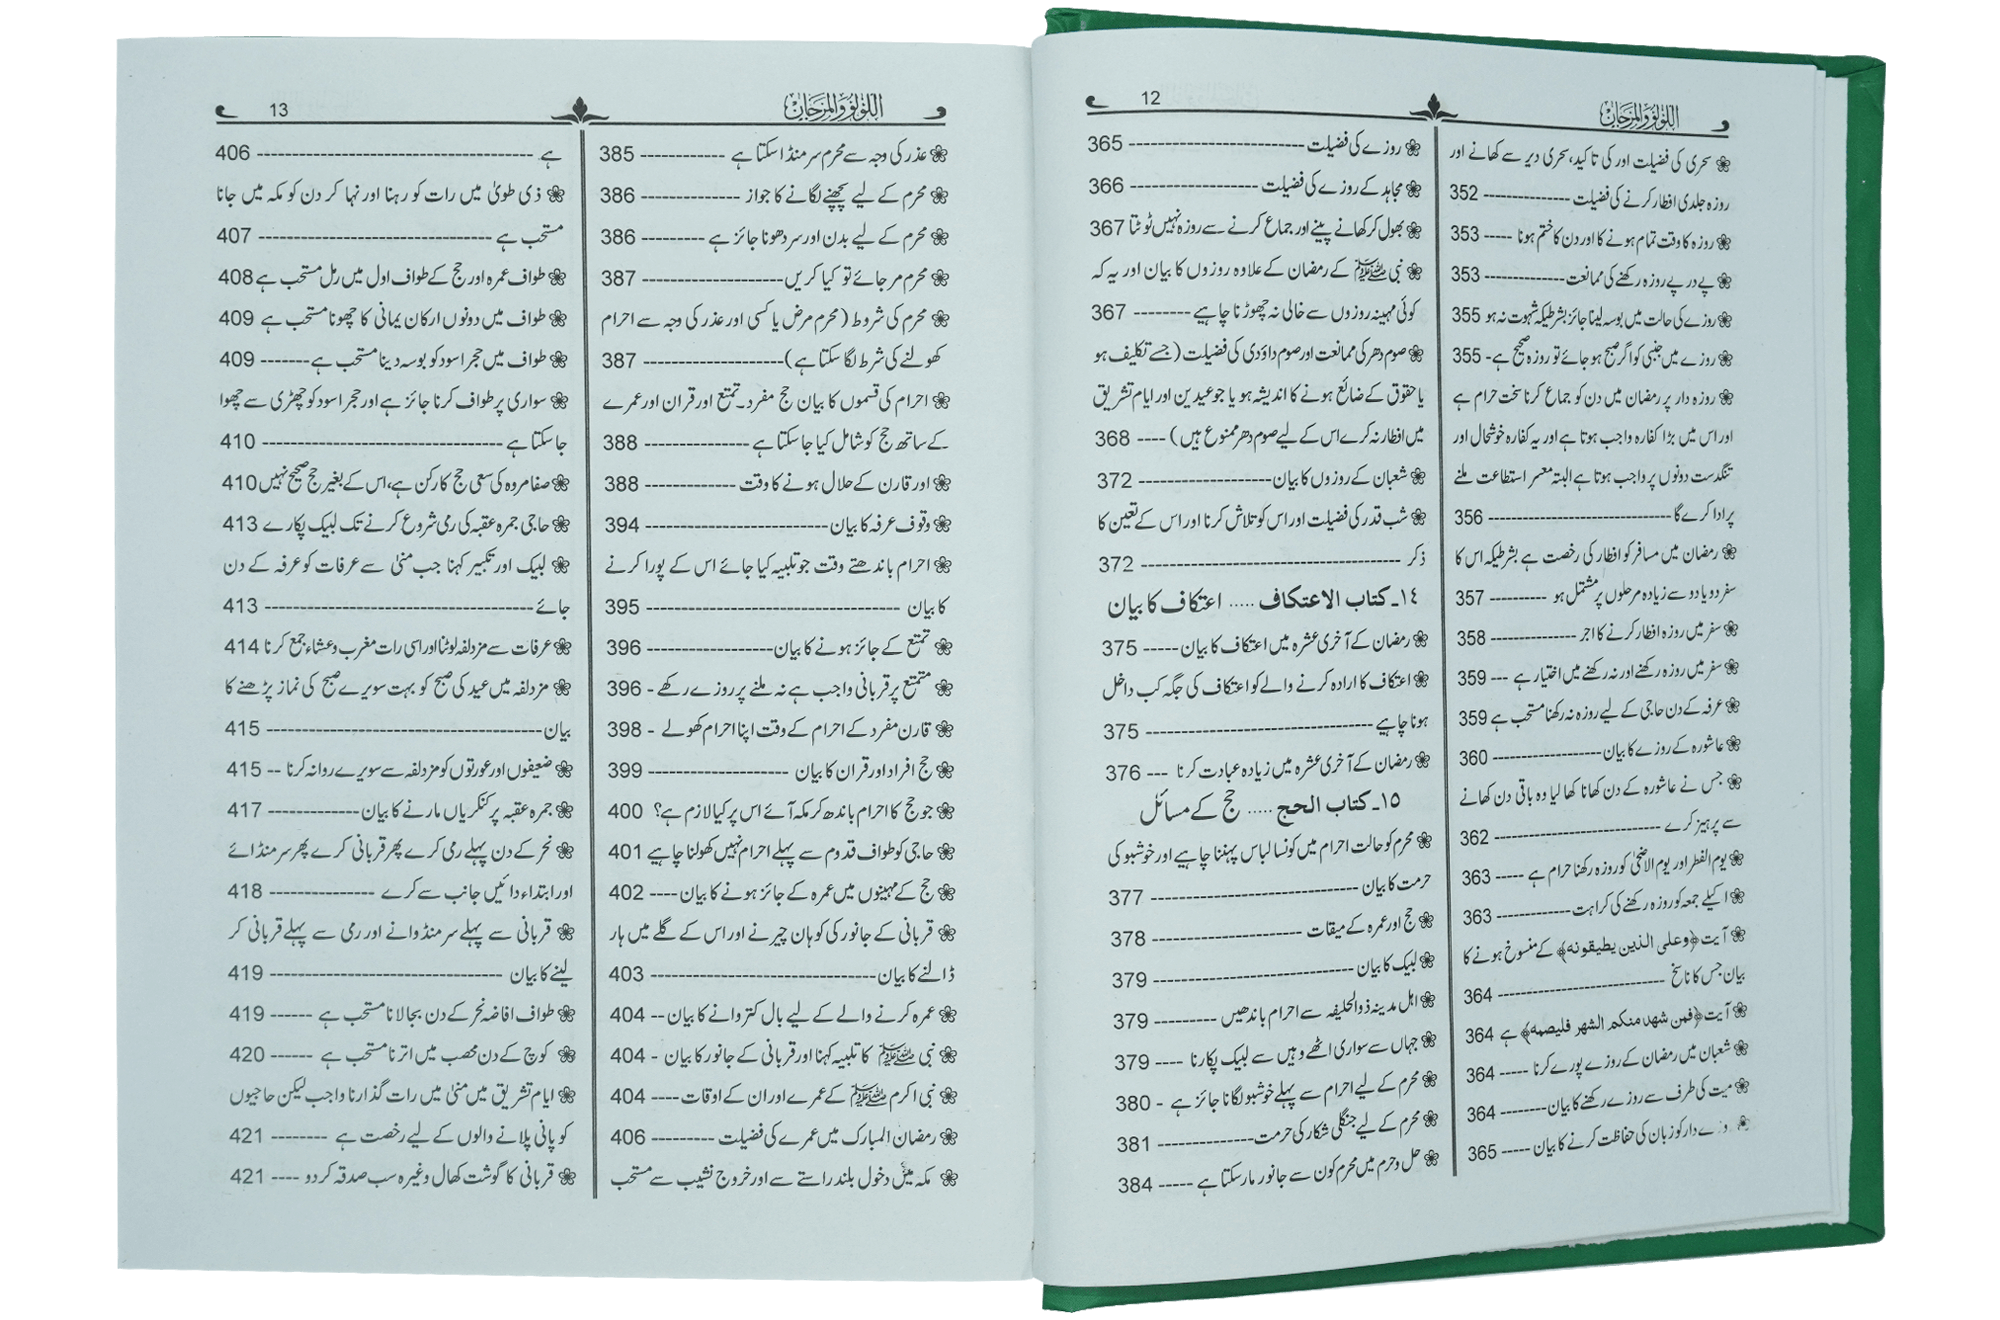 اللؤلؤ والمرجان 12
❀ سحری کی فضیلت اور کی تاکید، سحری دیر سے کھانے اور
روزہ جلدی افطار کرنے کی فضیلت -------------- 352
❀ روزہ کا وقت تمام ہونے کا اور دن کا ختم ہونا ----- 353
❀ پے در پے روزہ رکھنے کی ممانعت -------------- 353
❀ روزے کی حالت میں بوسہ لینا جائز بشرطیکہ شہوت نہ ہو 355
❀ روزے میں جنبی کو اگر صبح ہو جائے تو روزہ صحیح ہے - 355
❀ روزہ دار پر رمضان میں دن کو جماع کرنا سخت حرام ہے
اور اس میں بڑا کفارہ واجب ہوتا ہے اور یہ کفارہ خوشحال اور
تنگدست دونوں پر واجب ہوتا ہے البتہ معسر استطاعت ملنے
پر ادا کرے گا ------------------------------ 356
❀ رمضان میں مسافر کو افطار کی رخصت ہے بشرطیکہ اس کا
سفر دو یا دو سے زیادہ مرحلوں پر مشتمل ہو ---------- 357
❀ سفر میں روزہ افطار کرنے کا اجر --------------- 358
❀ سفر میں روزہ رکھنے اور نہ رکھنے میں اختیار ہے --- 359
❀ عرفہ کے دن حاجی کے لیے روزہ نہ رکھنا مستحب ہے 359
❀ عاشورہ کے روزے کا بیان ------------------- 360
❀ جس نے عاشورہ کے دن کھانا کھا لیا وہ باقی دن کھانے
سے پرہیز کرے ----------------------------- 362
❀ یوم الفطر اور یوم الاضحیٰ کو روزہ رکھنا حرام ہے ----- 363
❀ اکیلے جمعہ کو روزہ رکھنے کی کراہت ------------- 363
❀ آیت ﴿وعلی الذین یطیقونه﴾ کے منسوخ ہونے کا
بیان جس کا ناسخ ----------------------------- 364
❀ آیت ﴿فمن شهد منکم الشهر فلیصمه﴾ ہے 364
❀ شعبان میں رمضان کے روزے پورے کرنا ----- 364
❀ میت کی طرف سے روزے رکھنے کا بیان -------- 364
❀ روزے دار کو زبان کی حفاظت کرنے کا بیان ----- 365
❀ روزے کی فضیلت ------------------------- 365
❀ مجاہد کے روزے کی فضیلت ------------------ 366
❀ بھول کر کھانے پینے اور جماع کرنے سے روزہ نہیں ٹوٹتا 367
❀ نبی ﷺ کے رمضان کے علاوہ روزوں کا بیان اور یہ کہ
کوئی مہینہ روزوں سے خالی نہ چھوڑنا چاہیے -------- 367
❀ صوم دھر کی ممانعت اور صوم داؤدی کی فضیلت (جسے تکلیف ہو
یا حقوق کے ضائع ہونے کا اندیشہ ہو یا جو عیدین اور ایام تشریق
میں افطار نہ کرے اس کے لیے صوم دھر ممنوع ہیں) ---- 368
❀ شعبان کے روزوں کا بیان ------------------- 372
❀ شب قدر کی فضیلت اور اس کو تلاش کرنا اور اس کے تعین کا
ذکر ------------------------------------- 372
١٤۔ کتاب الاعتکاف ..... اعتکاف کا بیان
❀ رمضان کے آخری عشرہ میں اعتکاف کا بیان ----- 375
❀ اعتکاف کا ارادہ کرنے والے کو اعتکاف کی جگہ کب داخل
ہونا چاہیے -------------------------------- 375
❀ رمضان کے آخری عشرہ میں زیادہ عبادت کرنا --- 376
١٥۔ کتاب الحج ..... حج کے مسائل
❀ محرم کو حالت احرام میں کونسا لباس پہننا چاہیے اور خوشبو کی
حرمت کا بیان ------------------------------ 377
❀ حج اور عمرہ کے میقات --------------------- 378
❀ لبیک کا بیان ----------------------------- 379
❀ اہل مدینہ ذوالحلیفہ سے احرام باندھیں ---------- 379
❀ جہاں سے سواری اٹھے وہیں سے لبیک پکارنا ---- 379
❀ محرم کے لیے احرام سے پہلے خوشبو لگانا جائز ہے - 380
❀ محرم کے لیے جنگلی شکار کی حرمت -------------- 381
❀ حل و حرم میں محرم کون سے جانور مار سکتا ہے ----- 384
اللؤلؤ والمرجان 13
❀ عذر کی وجہ سے محرم سر منڈا سکتا ہے ------------ 385
❀ محرم کے لیے پچھنے لگانے کا جواز -------------- 386
❀ محرم کے لیے بدن اور سر دھونا جائز ہے --------- 386
❀ محرم مر جائے تو کیا کریں -------------------- 387
❀ محرم کی شروط (محرم مرض یا کسی اور عذر کی وجہ سے احرام
کھولنے کی شرط لگا سکتا ہے) -------------------- 387
❀ احرام کی قسموں کا بیان حج مفرد۔ تمتع اور قران اور عمرے
کے ساتھ حج کو شامل کیا جا سکتا ہے --------------- 388
❀ اور قارن کے حلال ہونے کا وقت ------------- 388
❀ وقوف عرفہ کا بیان -------------------------- 394
❀ احرام باندھتے وقت جو تلبیہ کیا جائے اس کے پورا کرنے
کا بیان ------------------------------------ 395
❀ تمتع کے جائز ہونے کا بیان ------------------ 396
❀ متمتع پر قربانی واجب ہے نہ ملنے پر روزے رکھے - 396
❀ قارن مفرد کے احرام کے وقت اپنا احرام کھولے - 398
❀ حج افراد اور قران کا بیان -------------------- 399
❀ جو حج کا احرام باندھ کر مکہ آئے اس پر کیا لازم ہے؟ 400
❀ حاجی کو طواف قدوم سے پہلے احرام نہیں کھولنا چاہیے 401
❀ حج کے مہینوں میں عمرہ کے جائز ہونے کا بیان ---- 402
❀ قربانی کے جانور کی کوہان چیرنے اور اس کے گلے میں ہار
ڈالنے کا بیان -------------------------------- 403
❀ عمرہ کرنے والے کے لیے بال کتروانے کا بیان -- 404
❀ نبی ﷺ کا تلبیہ کہنا اور قربانی کے جانور کا بیان - 404
❀ نبی اکرم ﷺ کے عمرے اور ان کے اوقات ---- 404
❀ رمضان المبارک میں عمرے کی فضیلت --------- 406
❀ مکہ میں دخول بلند راستے سے اور خروج نشیب سے مستحب
ہے --------------------------------------- 406
❀ ذی طویٰ میں رات کو رہنا اور نہا کر دن کو مکہ میں جانا
مستحب ہے --------------------------------- 407
❀ طواف عمرہ اور حج کے طواف اول میں رمل مستحب ہے 408
❀ طواف میں دونوں ارکان یمانی کا چھونا مستحب ہے 409
❀ طواف میں حجر اسود کو بوسہ دینا مستحب ہے ------- 409
❀ سواری پر طواف کرنا جائز ہے اور حجر اسود کو چھڑی سے چھوا
جا سکتا ہے ---------------------------------- 410
❀ صفا مروہ کی سعی حج کا رکن ہے، اس کے بغیر حج صحیح نہیں 410
❀ حاجی جمرہ عقبہ کی رمی شروع کرنے تک لبیک پکارے 413
❀ لبیک اور تکبیر کہنا جب منیٰ سے عرفات کو عرفہ کے دن
جائے -------------------------------------- 413
❀ عرفات سے مزدلفہ لوٹنا اور اسی رات مغرب و عشاء جمع کرنا 414
❀ مزدلفہ میں عید کی صبح کو بہت سویرے صبح کی نماز پڑھنے کا
بیان --------------------------------------- 415
❀ ضعیفوں اور عورتوں کو مزدلفہ سے سویرے روانہ کرنا -- 415
❀ جمرہ عقبہ پر کنکریاں مارنے کا بیان ------------- 417
❀ نحر کے دن پہلے رمی کرے پھر قربانی کرے پھر سر منڈائے
اور ابتداء دائیں جانب سے کرے --------------- 418
❀ قربانی سے پہلے سر منڈوانے اور رمی سے پہلے قربانی کر
لینے کا بیان --------------------------------- 419
❀ طواف افاضہ نحر کے دن بجا لانا مستحب ہے ------ 419
❀ کوچ کے دن محصب میں اترنا مستحب ہے ------ 420
❀ ایام تشریق میں منیٰ میں رات گذارنا واجب لیکن حاجیوں
کو پانی پلانے والوں کے لیے رخصت ہے -------- 421
❀ قربانی کا گوشت کھال وغیرہ سب صدقہ کر دو ---- 421